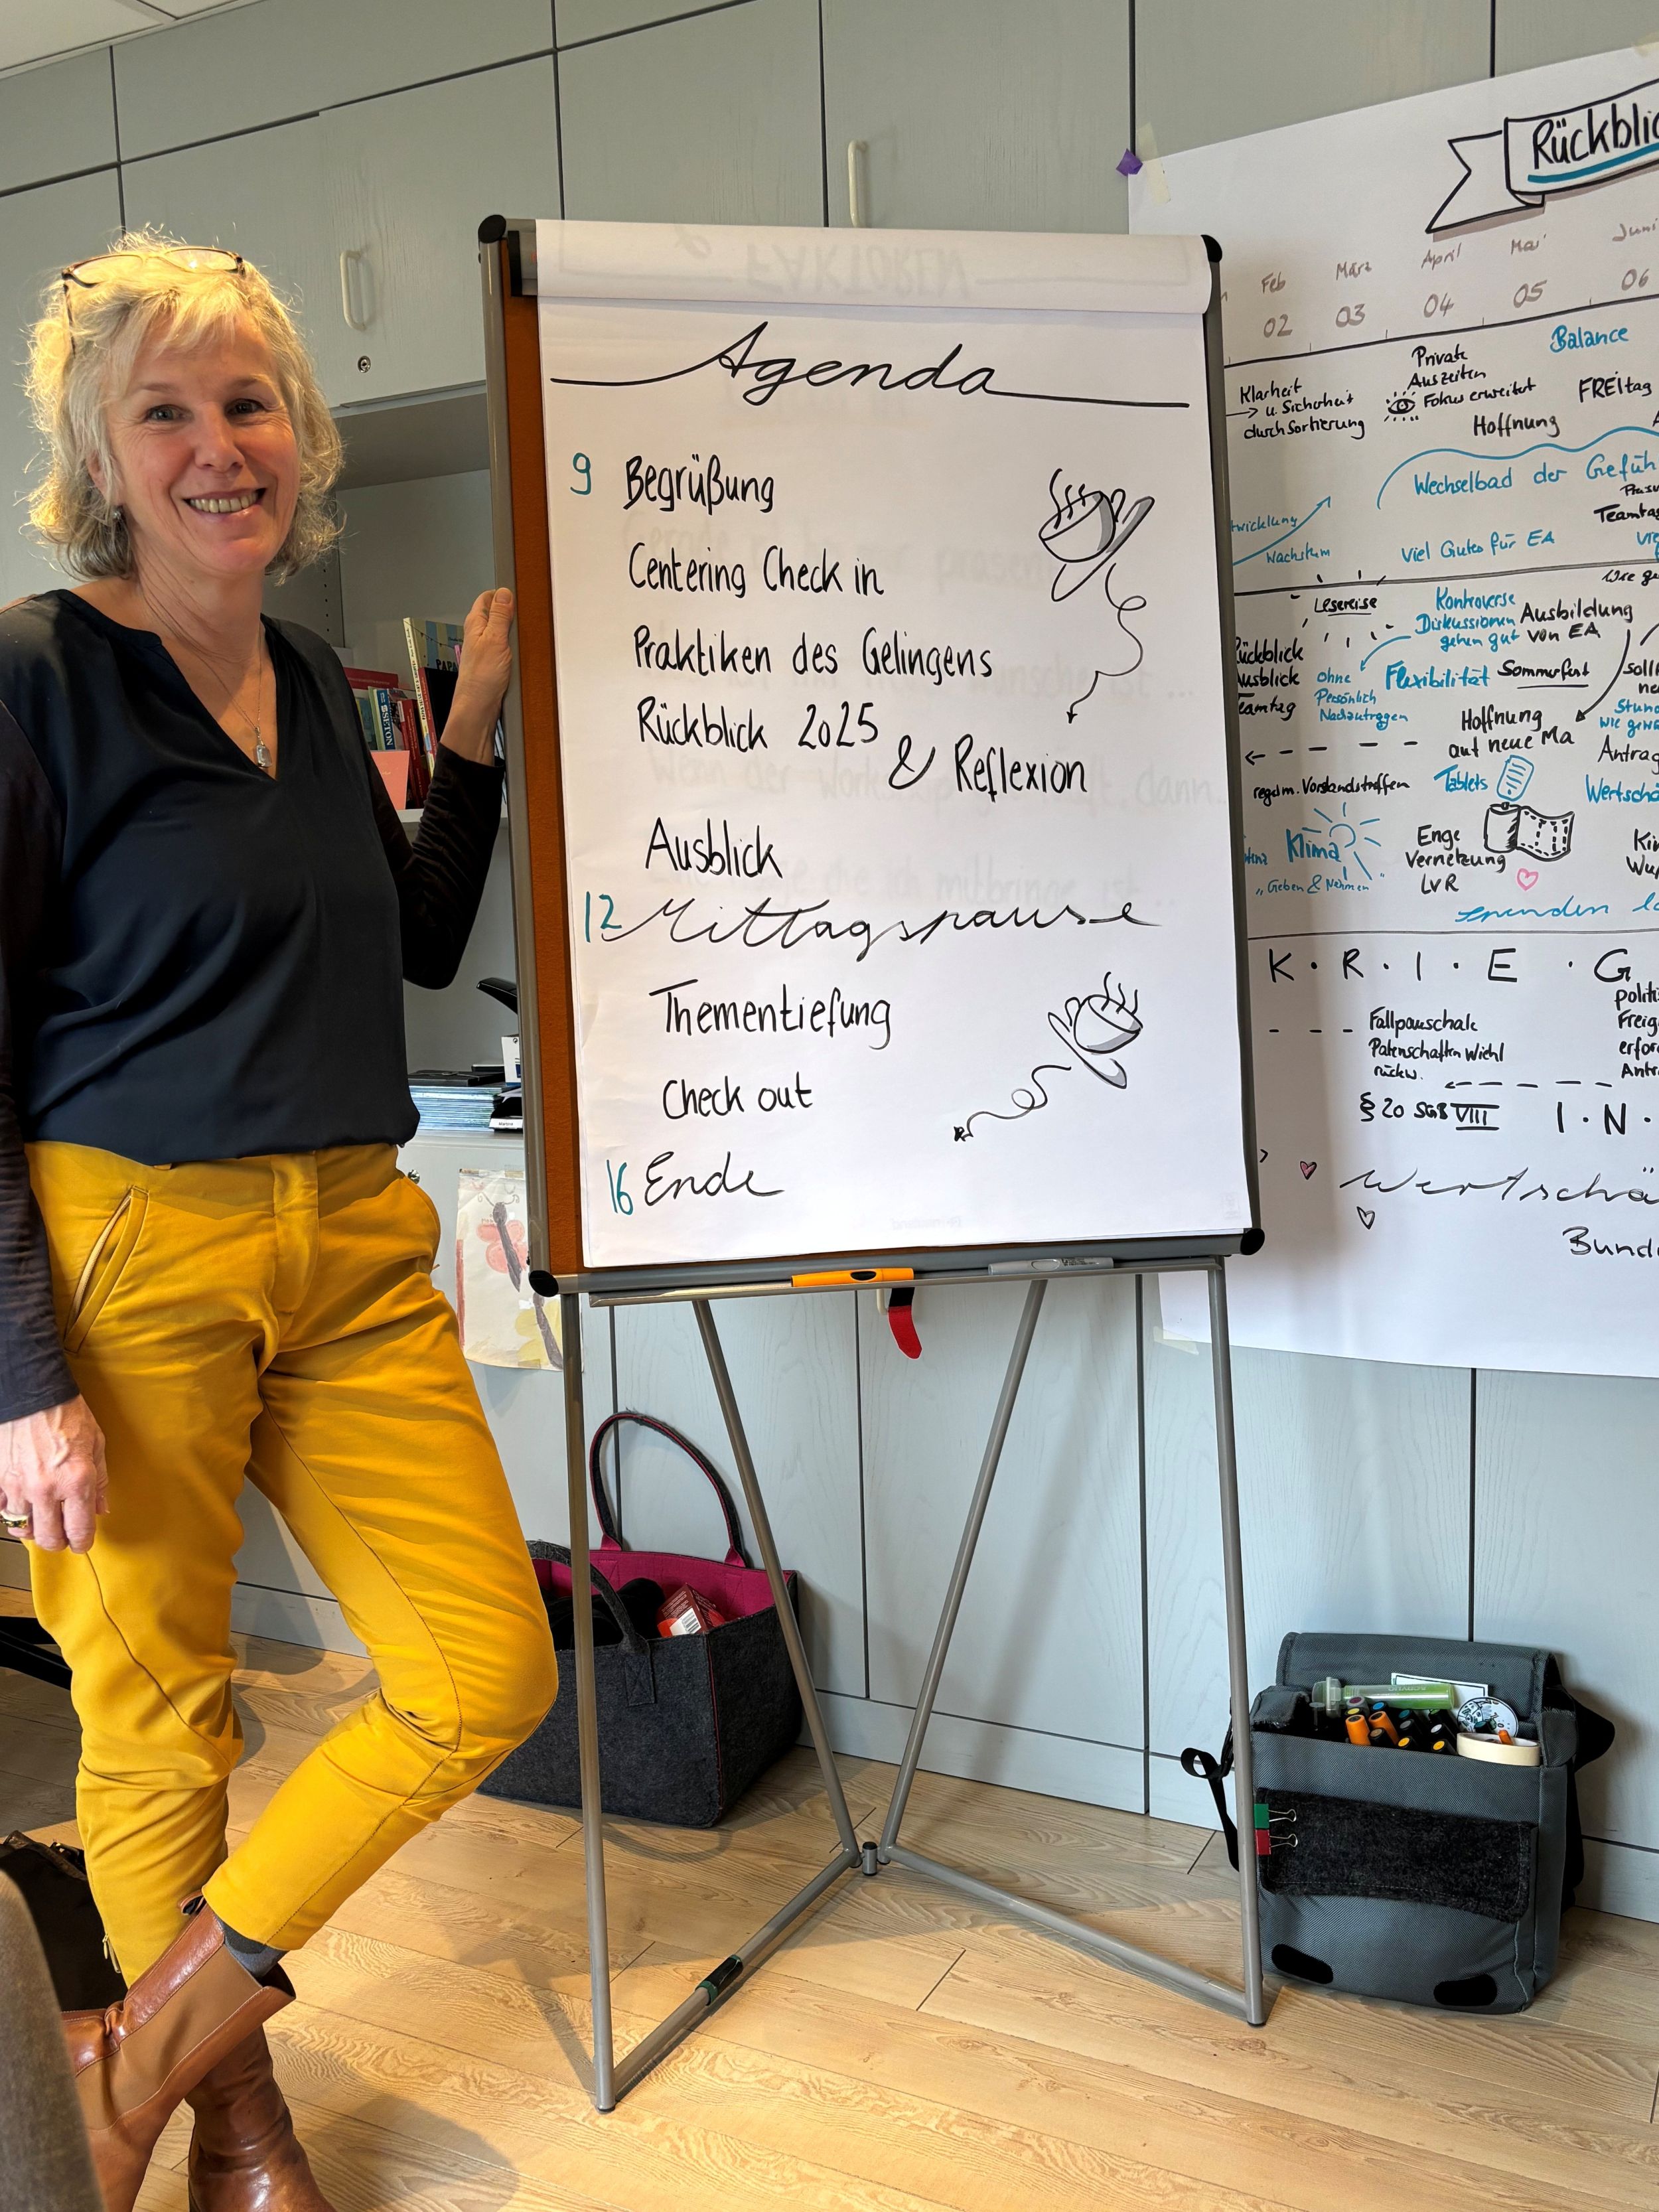 Agenda
9 Begrüßung
Centering Check in
Praktiken des Gelingens
Rückblick 2025
& Reflexion
Ausblick
12 Mittagspause
Thementiefung
Check out
16 Ende
FAKTOREN
Feb
März
April
Mai
Juni
02
03
04
05
06
Klarheit
→ u. Sicherheit
durch Sortierung
Private
Auszeiten
Fokus erweitert
Balance
FREItag
Hoffnung
Wechselbad der
Nachstum
viel Gutes für EA
Lesereise
Kontroverse
Diskussionen
gehen gut
Ausbildung
von EA
Rückblick
Ausblick
Teamtag
ohne
Persönlich
Nachzutragen
Flexibilität
Sommerfest
Hoffnung
auf neue Ma
regelm. Vorstandstreffen
Tablets
Klima
"Geben & Nehmen"
Enge
Vernetzung
LVR
Spenden
K · R · I · E · G
Fallpauschale
Patenschaften Wiehl
rückw.
§ 20 SGB VIII
I · N ·